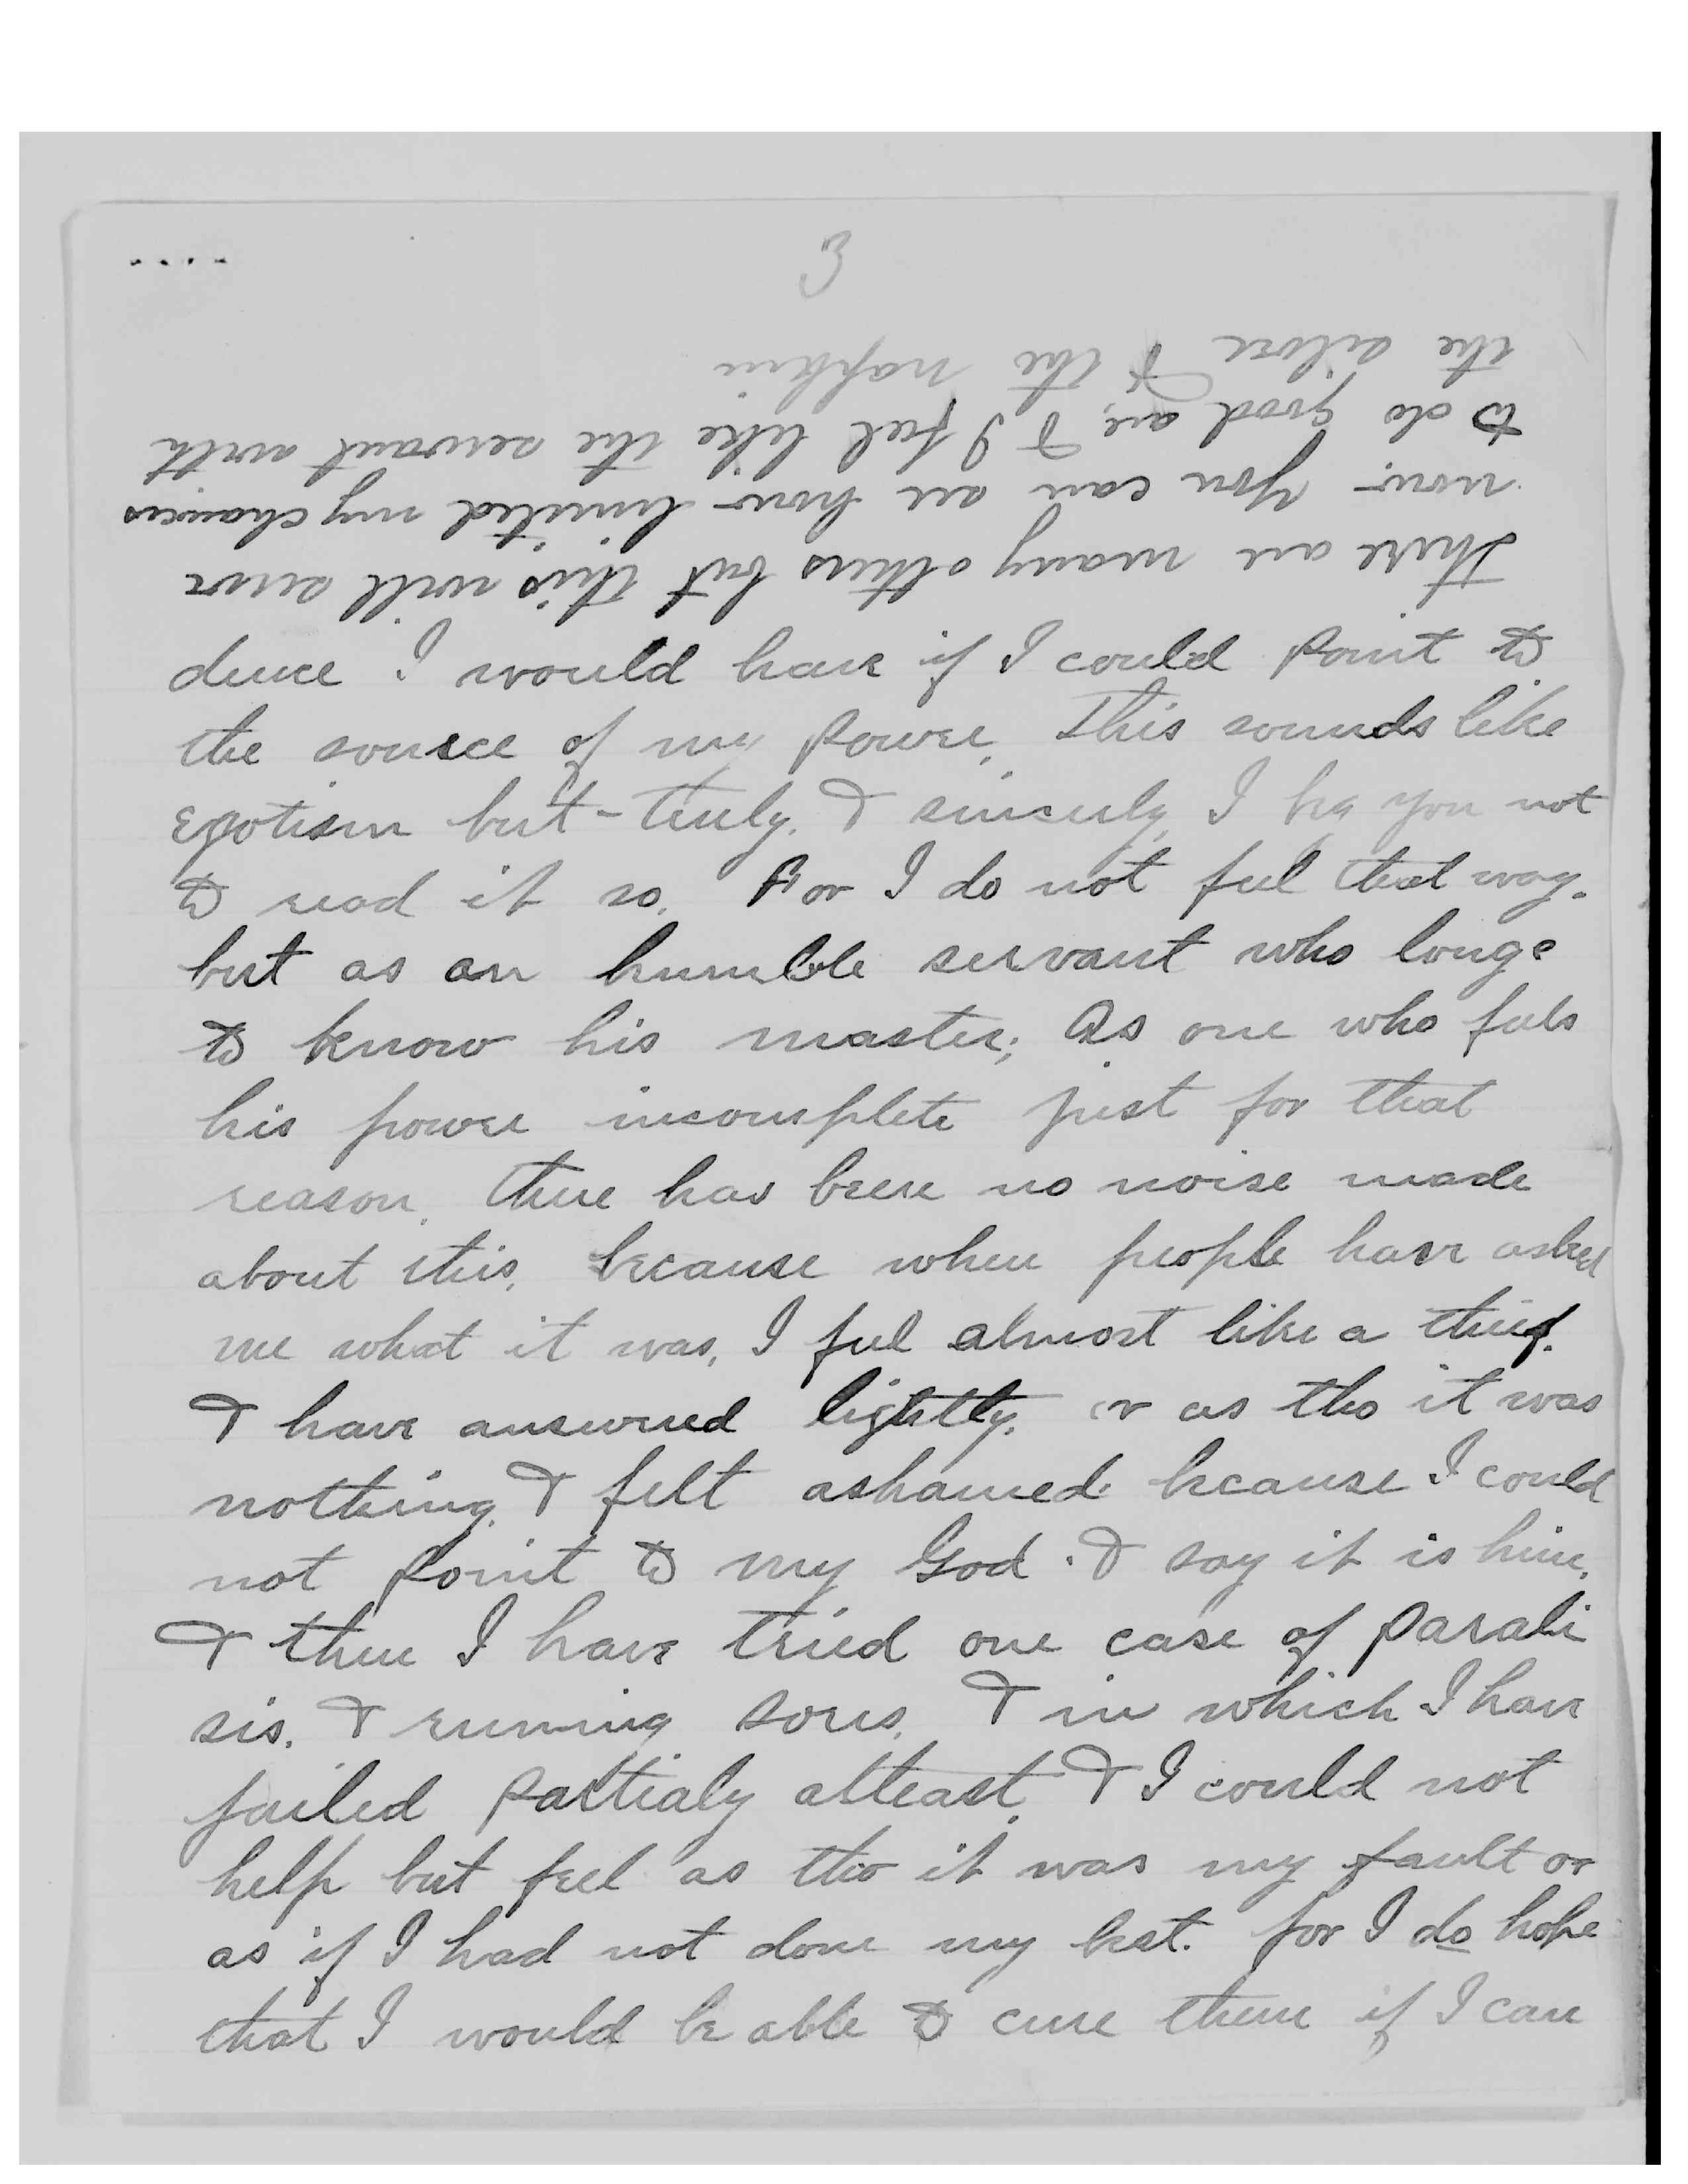 3
There are many others but this will serve
now. You can see how limited my chances
to do good are, & I feel like the servant with
the silver & the napkin
dence I would have if I could point to
the source of my power. This sounds like
egotism but - truly, & sincerly, I beg you not
to read it so. For I do not feel that way.
but as an humble servant who longs
to know his master; As one who feels
his power incomplete just for that
reason. there has been no noise made
about this, because when people have asked
me what it was, I feel almost like a thief.
& have answered lightly, or as tho it was
nothing. & felt ashamed because I could
not point to my God. & say it is him.
& then I have tried one case of Parali
sis. & running sores. & in which I have
failed Partialy atleast. & I could not
help but feel as tho it was my fault or
as if I had not done my best. for I do hope
that I would be able to cure them if I can